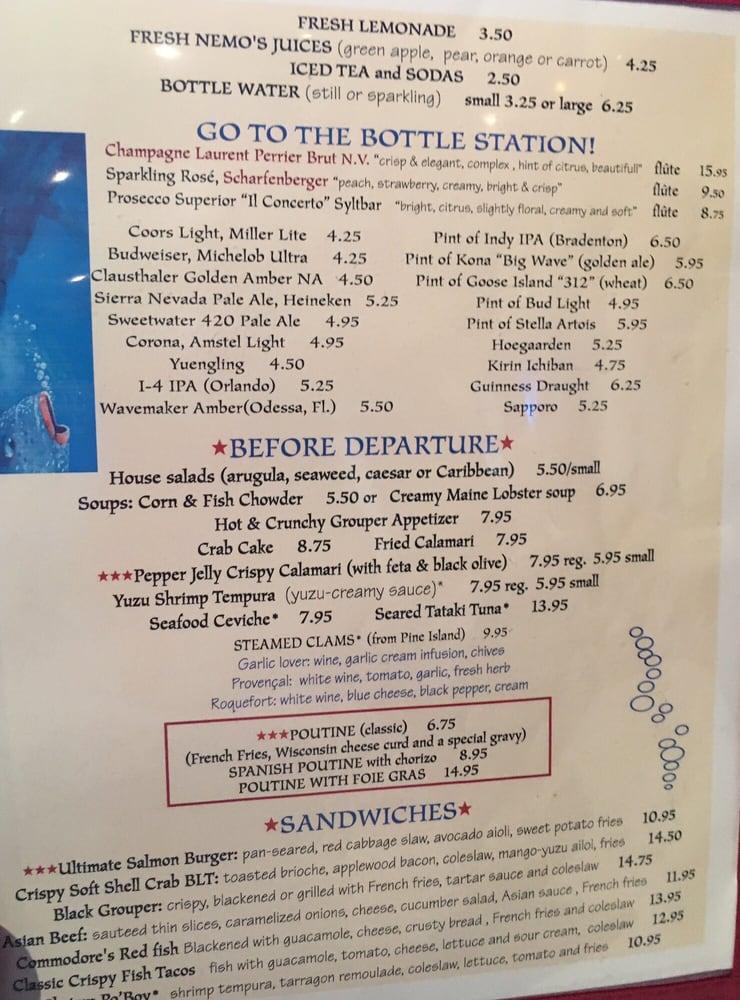 FRESH LEMONADE 3.50
FRESH NEMO'S JUICES (green apple, pear, orange or carrot) 4.25
ICED TEA and SODAS 2.50
BOTTLE WATER (still or sparkling) small 3.25 or large 6.25
GO TO THE BOTTLE STATION!
Champagne Laurent Perrier Brut N.V. "crisp & elegant, complex, hint of citrus, beautifull" flûte 15.95
Sparkling Rosé, Scharfenberger "peach, strawberry, creamy, bright & crisp" flûte 9.50
Prosecco Superior "Il Concerto" Syltbar "bright, citrus, slightly floral, creamy and soft" flûte 8.75
Coors Light, Miller Lite 4.25
Budweiser, Michelob Ultra 4.25
Clausthaler Golden Amber NA 4.50
Sierra Nevada Pale Ale, Heineken 5.25
Sweetwater 420 Pale Ale 4.95
Corona, Amstel Light 4.95
Yuengling 4.50
I-4 IPA (Orlando) 5.25
Wavemaker Amber(Odessa, Fl.) 5.50
Pint of Indy IPA (Bradenton) 6.50
Pint of Kona "Big Wave" (golden ale) 5.95
Pint of Goose Island "312" (wheat) 6.50
Pint of Bud Light 4.95
Pint of Stella Artois 5.95
Hoegaarden 5.25
Kirin Ichiban 4.75
Guinness Draught 6.25
Sapporo 5.25
★BEFORE DEPARTURE★
House salads (arugula, seaweed, caesar or Caribbean) 5.50/small
Soups: Corn & Fish Chowder 5.50 or Creamy Maine Lobster soup 6.95
Hot & Crunchy Grouper Appetizer 7.95
Crab Cake 8.75 Fried Calamari 7.95
★★★Pepper Jelly Crispy Calamari (with feta & black olive) 7.95 reg. 5.95 small
Yuzu Shrimp Tempura (yuzu-creamy sauce)* 7.95 reg. 5.95 small
Seafood Ceviche* 7.95 Seared Tataki Tuna* 13.95
STEAMED CLAMS* (from Pine Island) 9.95
Garlic lover: wine, garlic cream infusion, chives
Provençal: white wine, tomato, garlic, fresh herb
Roquefort: white wine, blue cheese, black pepper, cream
★★★POUTINE (classic) 6.75
(French Fries, Wisconsin cheese curd and a special gravy)
SPANISH POUTINE with chorizo 8.95
POUTINE WITH FOIE GRAS 14.95
★SANDWICHES★
★★★Ultimate Salmon Burger: pan-seared, red cabbage slaw, avocado aioli, sweet potato fries 10.95
Crispy Soft Shell Crab BLT: toasted brioche, applewood bacon, coleslaw, mango-yuzu ailol, fries 14.50
Black Grouper: crispy, blackened or grilled with French fries, tartar sauce and coleslaw 14.75
Asian Beef: sauteed thin slices, caramelized onions, cheese, cucumber salad, Asian sauce, French fries 11.95
Commodore's Red fish Blackened with guacamole, cheese, crusty bread, French fries and coleslaw 13.95
Classic Crispy Fish Tacos fish with guacamole, tomato, cheese, lettuce and sour cream, coleslaw 12.95
Po'Boy* shrimp tempura, tarragon remoulade, coleslaw, lettuce, tomato and fries 10.95